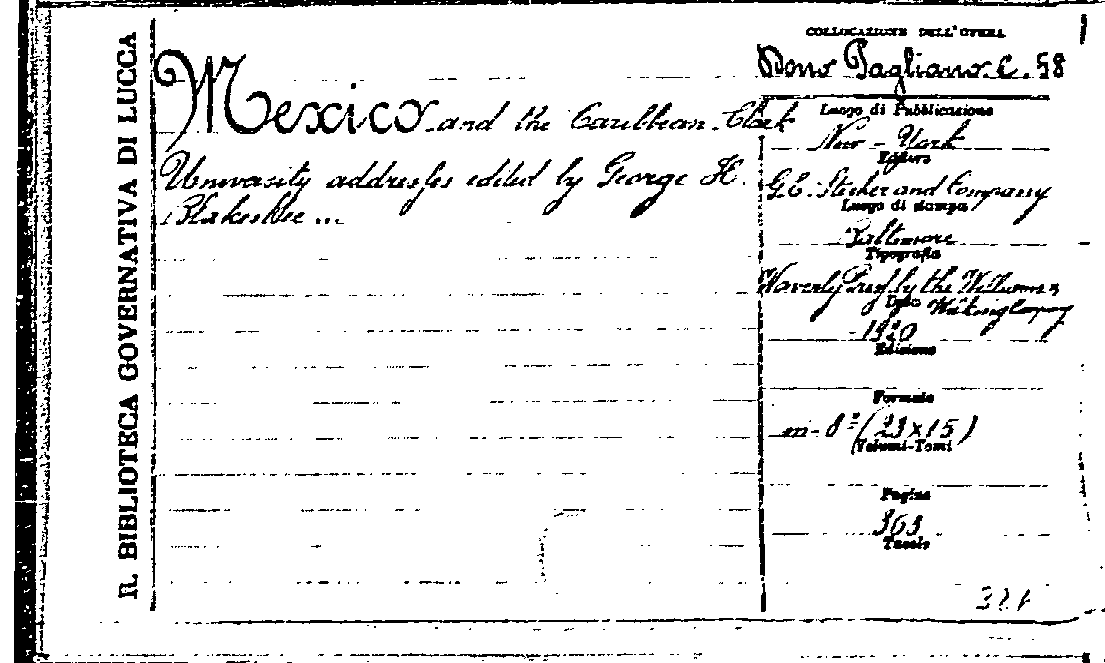 R. BIBLIOTECA GOVERNATIVA DI LUCCA
Mexico and the Caribbean. Clark
University addresses edited by George H.
Blakeslee ...
COLLOCAZIONE DELL'OPERA
Dono Pagliano. C. 58
Luogo di Pubblicazione
New-York
Editore
G.E. Stecher and Company
Luogo di stampa
Baltimore
Tipografia
Waverly Press by the Williams
Data
Wilkins Company
1920
Edizione
Formato
in-8º (23x15)
(Volumi-Tomi
Pagine
363
Tavole